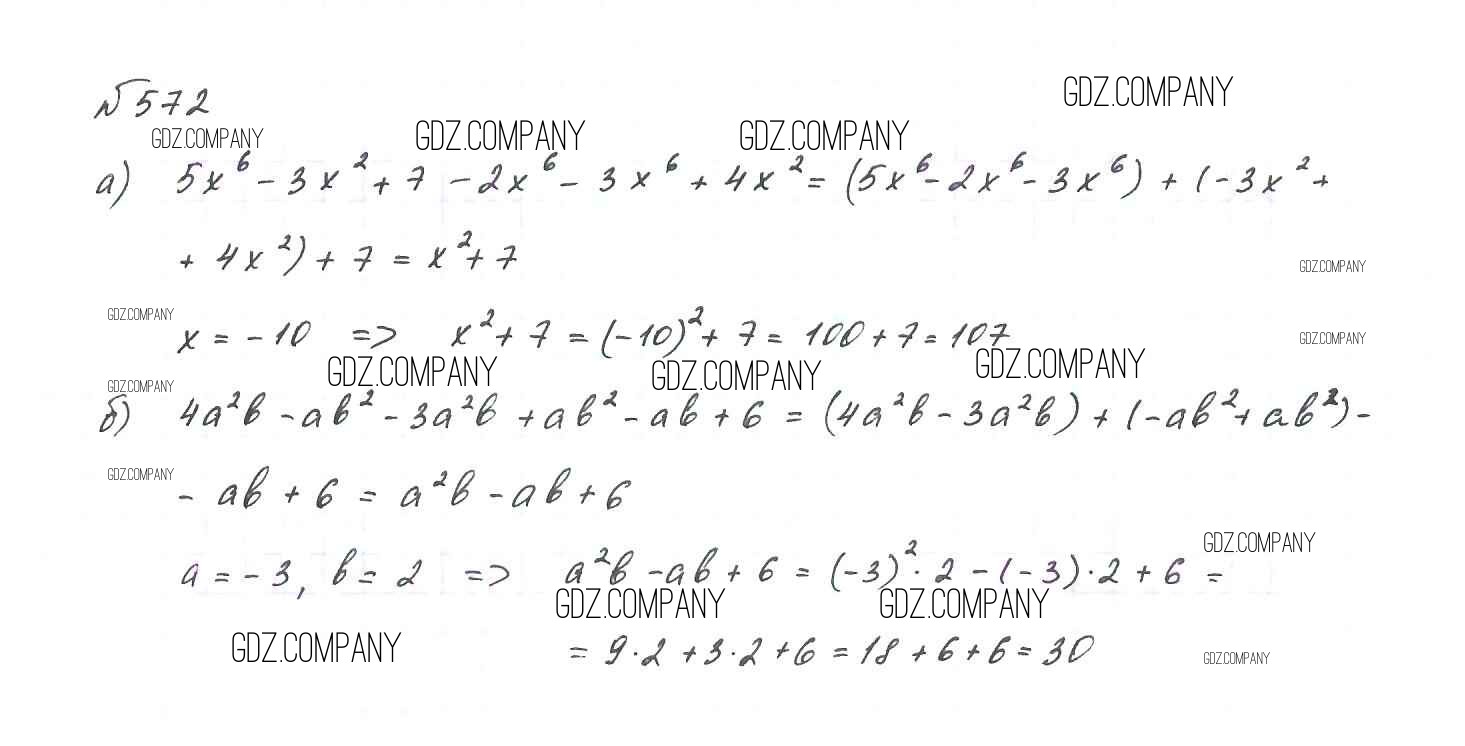 №572
GDZ.COMPANY
GDZ.COMPANY GDZ.COMPANY GDZ.COMPANY
а) 5x⁶ - 3x² + 7 - 2x⁶ - 3x⁶ + 4x² = (5x⁶ - 2x⁶ - 3x⁶) + (-3x² +
+ 4x²) + 7 = x² + 7
GDZ.COMPANY
GDZ.COMPANY
x = -10 => x² + 7 = (-10)² + 7 = 100 + 7 = 107
GDZ.COMPANY
GDZ.COMPANY GDZ.COMPANY GDZ.COMPANY
GDZ.COMPANY
б) 4a²b - ab² - 3a²b + ab² - ab + 6 = (4a²b - 3a²b) + (-ab² + ab²) -
GDZ.COMPANY
- ab + 6 = a²b - ab + 6
GDZ.COMPANY
a = -3, b = 2 => a²b - ab + 6 = (-3)² · 2 - (-3) · 2 + 6 =
GDZ.COMPANY GDZ.COMPANY
GDZ.COMPANY
= 9 · 2 + 3 · 2 + 6 = 18 + 6 + 6 = 30
GDZ.COMPANY